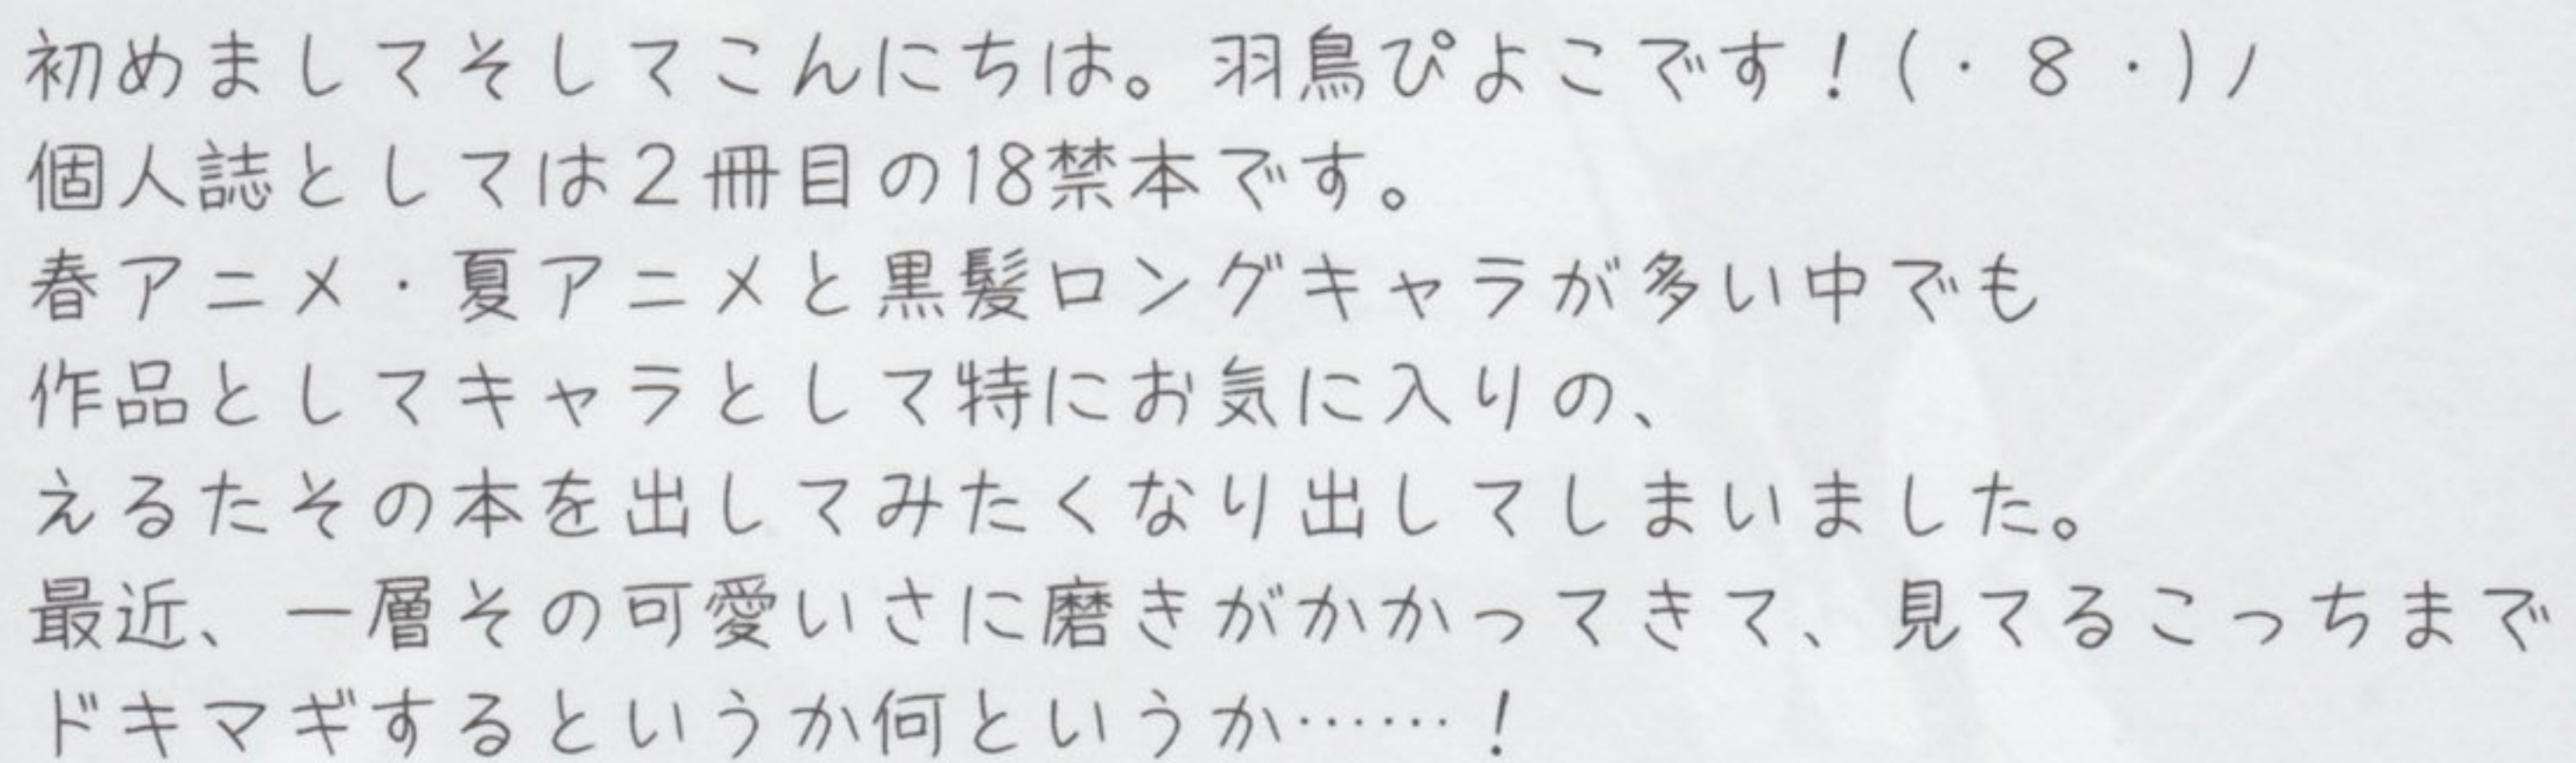 初めましてそしてこんにちは。羽鳥ぴよこです！(・８・)ノ
個人誌としては２冊目の18禁本です。
春アニメ・夏アニメと黒髪ロングキャラが多い中でも
作品としてキャラとして特にお気に入りの、
えるたその本を出してみたくなり出してしまいました。
最近、一層その可愛いさに磨きがかかってきて、見てるこっちまで
ドキマギするというか何というか……！